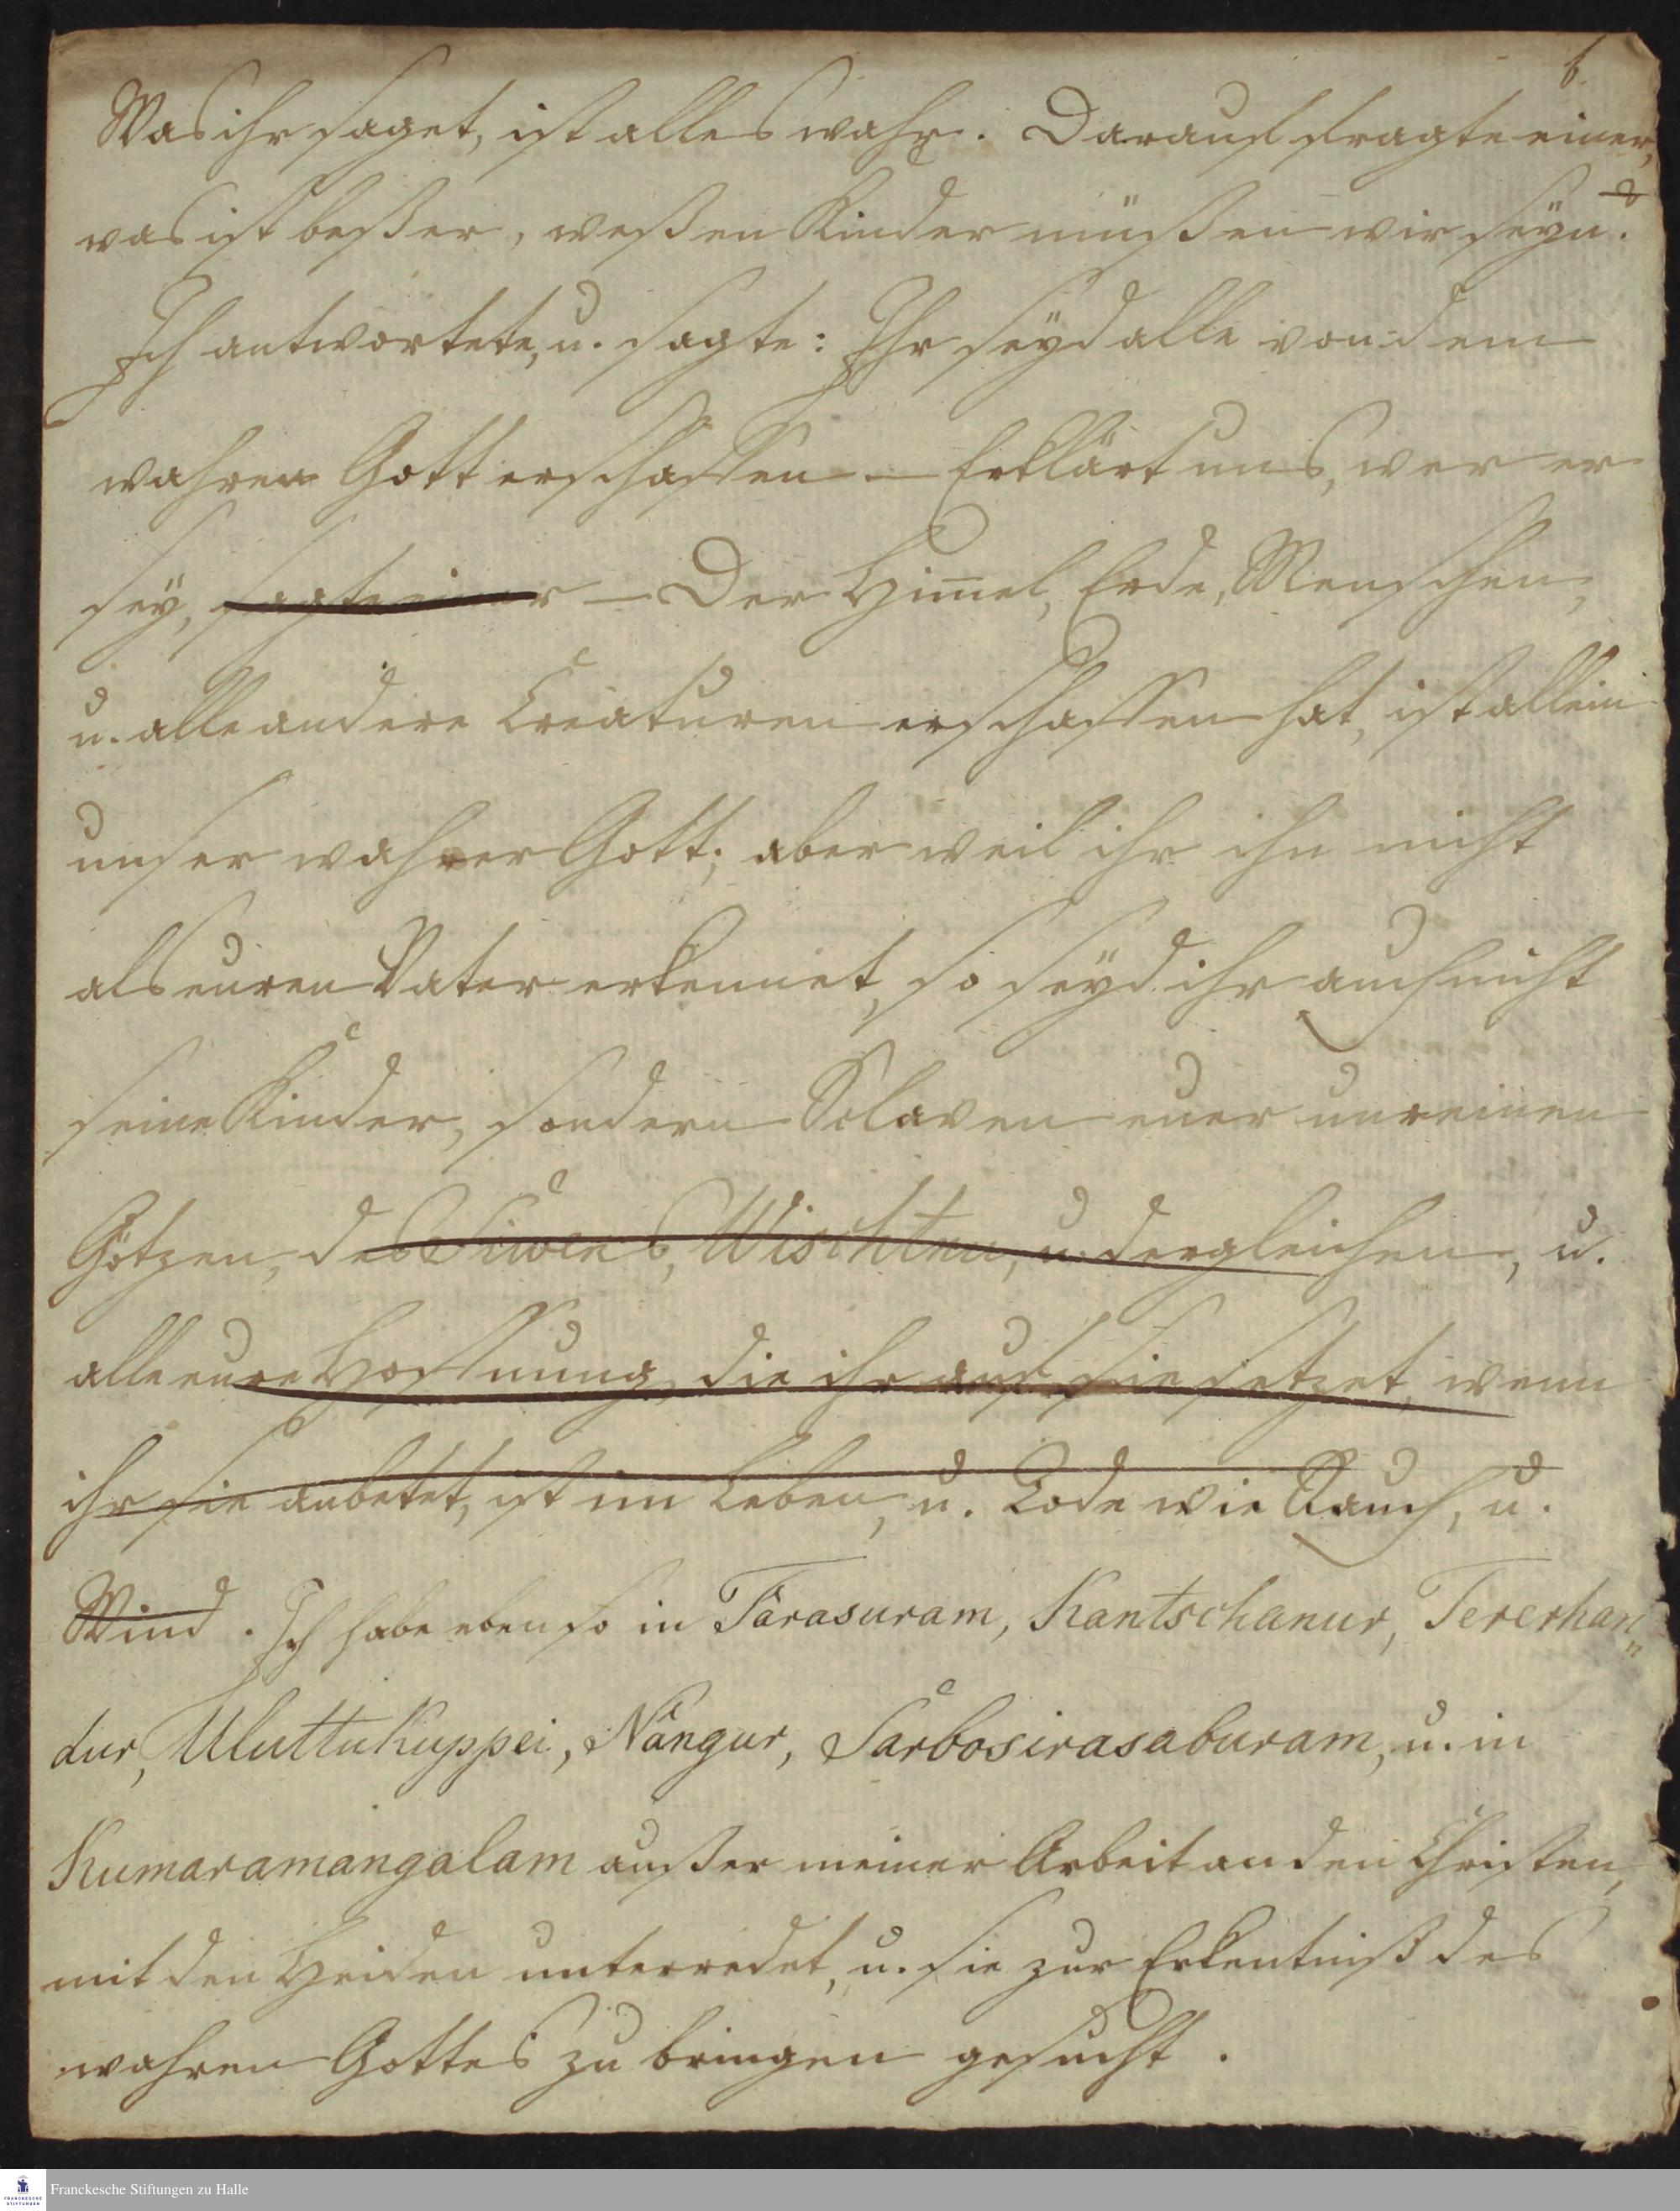 6.
Was ihr saget, ist alles wahr. Darauf fragte einer,
was ist beßer, weßen Kinder müßen wir seÿn.
Ich antwortete, u. sagte: Ihr seÿd alle von dem
wahren Gott erschaffen — Erklärt uns, wer er
seÿ, sagte einer — Der Him̄el, Erde, Menschen,
u. alle andere Creaturen erschaffen hat, ist allein
unser wahrer Gott; aber weil ihr ihn nicht
als euren Vater erkennet, so seÿd ihr auch nicht
seine Kinder, sondern Sclaven euer unreinen
Götzen, des Siwens, Wischtnu, u. dergleichen, u.
alle eure Hoffnung, die ihr auf sie setzet, wenn
ihr sie anbetet, ist im Leben, u. Tode wie Rauch, u.
Wind. Ich habe eben so in Tarasuram, Kantschanur, Tererhan„
dur, Uluttukuppei, Nángur, Sarbosirasaburam, u. in
Kumaramangalam außer meiner Arbeit an den Christen,
mit den Heiden unterredet, u. sie zur Erkentniß des
wahren Gottes zu bringen gesucht.
Franckesche Stiftungen zu Halle